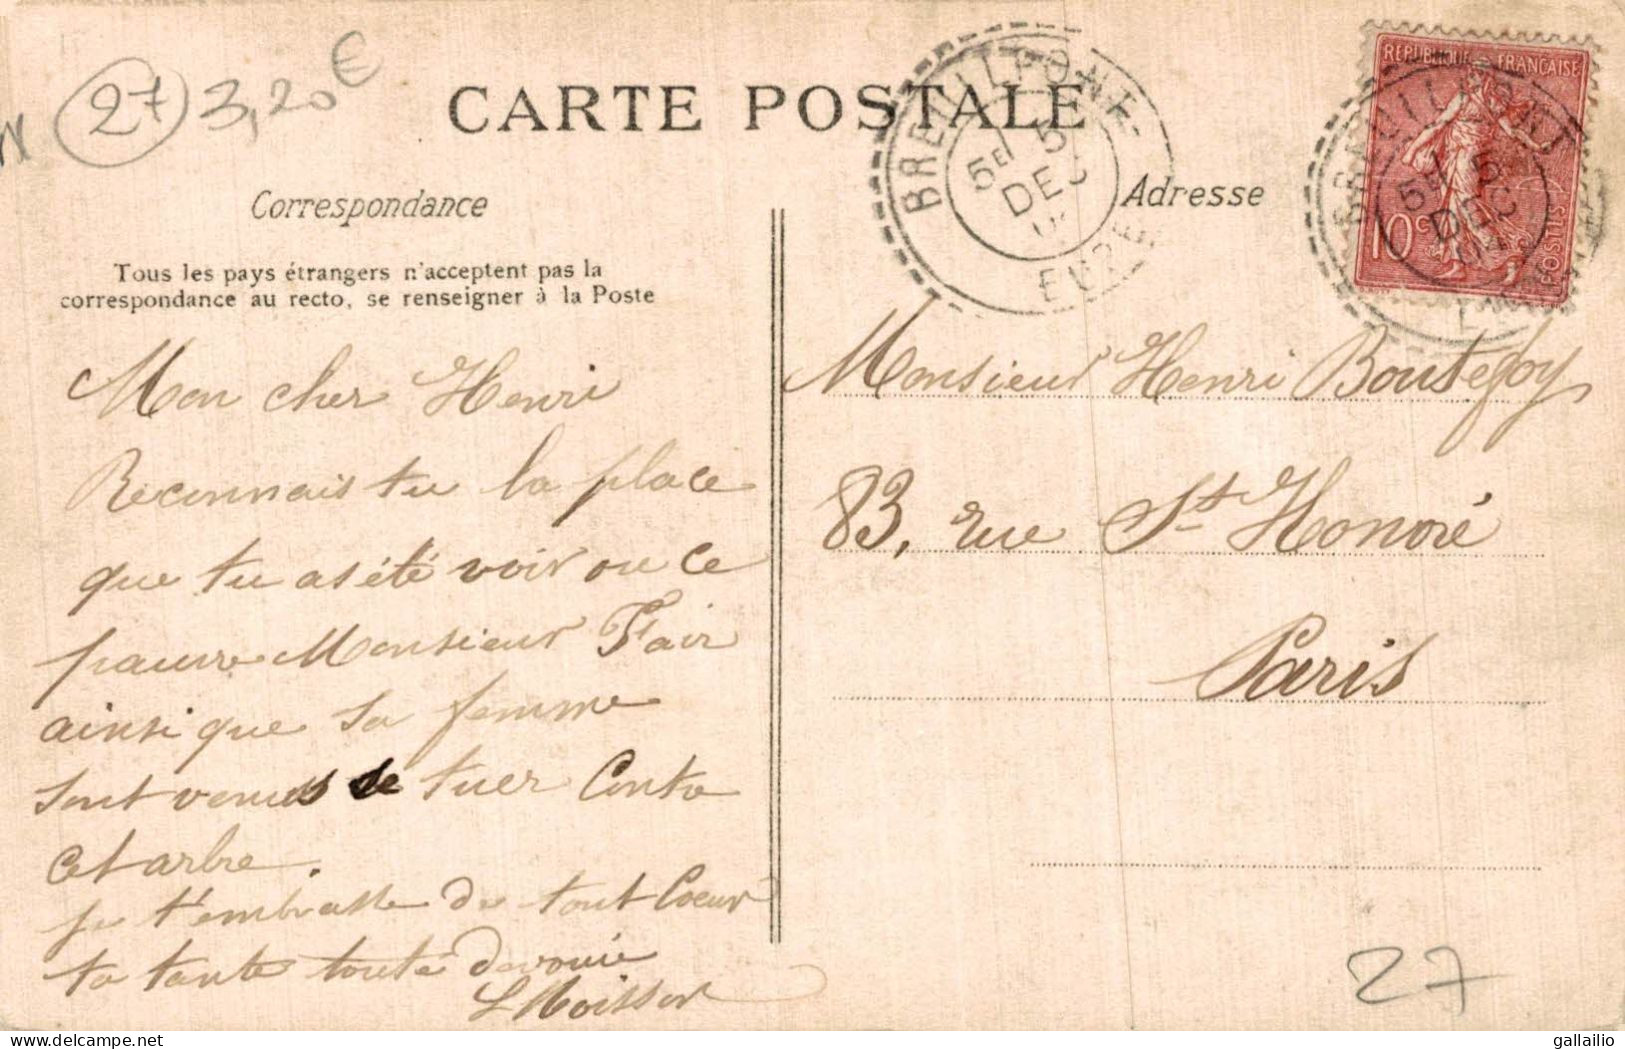 27 3,20€
CARTE POSTALE
Correspondance
Adresse
Tous les pays étrangers n'acceptent pas la
correspondance au recto, se renseigner à la Poste
Mon cher Henri
Reconnais tu la place
que tu as été voir ou ce
pauvre Monsieur Fair
ainsi que sa femme
sont venus se tuer Contre
Cet arbre.
je t'embrasse de tout Coeur
ta tante toute dévouée
L Moisson
BREUILPONT
5E 5
DEC
EURE
REPUBLIQUE FRANÇAISE
10c
POSTES
BREUILPONT
5E 5
DEC
04
Monsieur Henri Boutefoy
83, rue St Honoré
Paris
27
gallailio